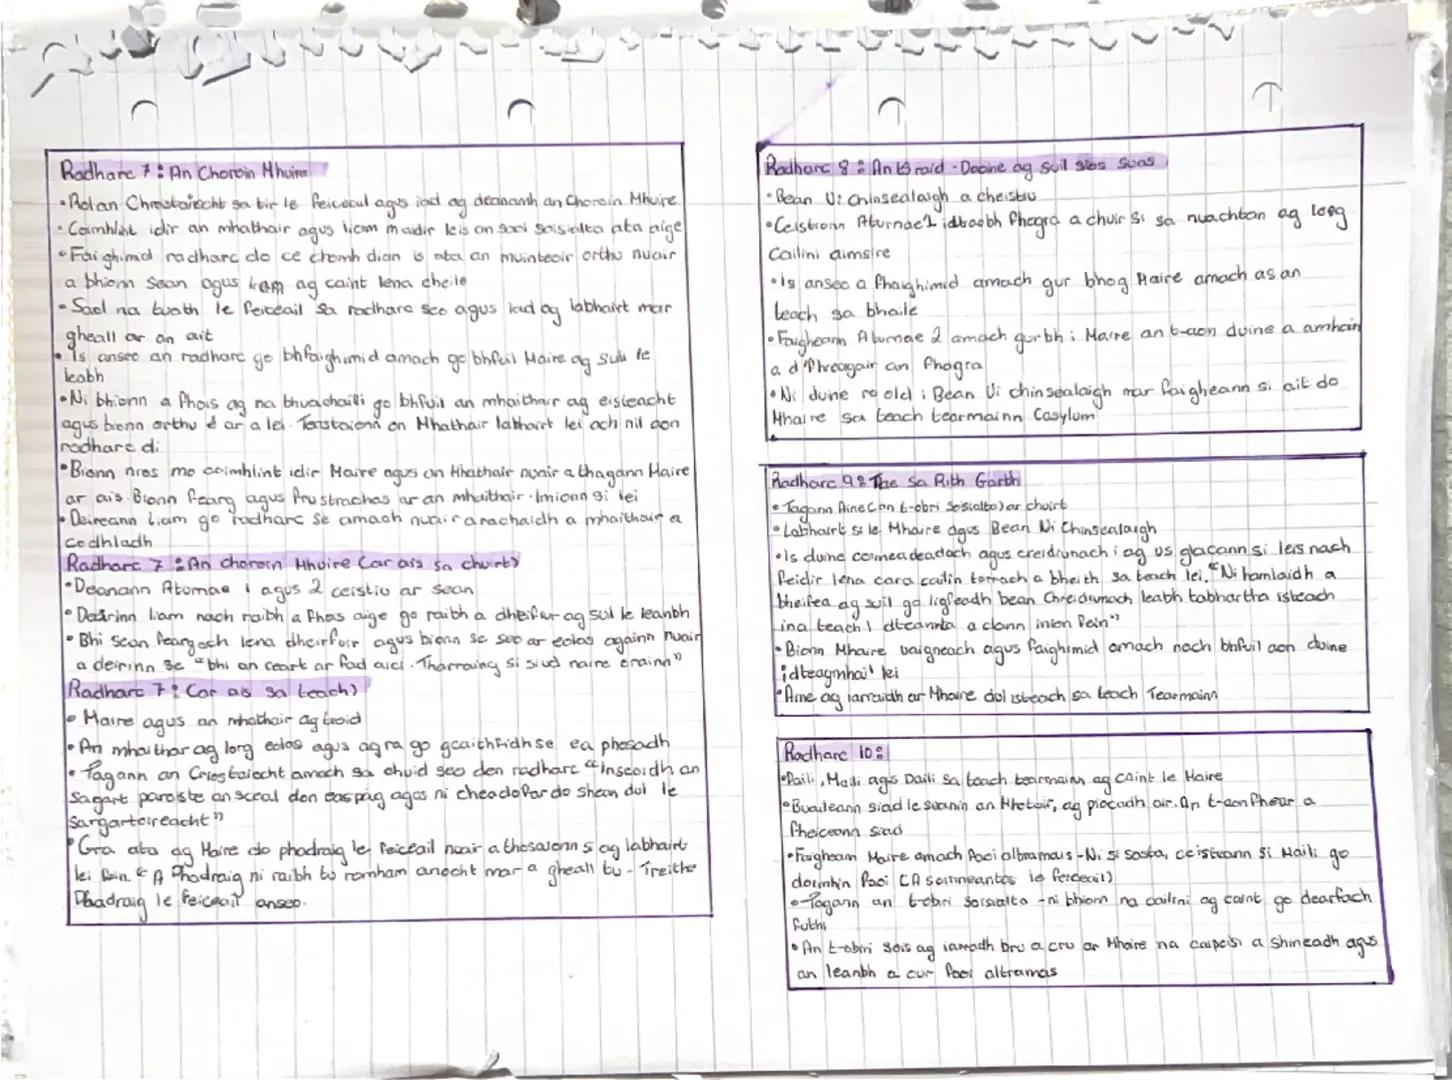 Radharc 7 : An Choroin Mhuire
• Rol an Chreastaiocht sa tir le feiceail agus iad ag deanamh an Choroin Mhuire
• Coimhlint idir an mhathair agus liam maidir leis an saol soisialta ata aige
• Faighimid radharc do ce chomh dian is ata an muinteoir orthu nuair
a bhionn Sean agus liam ag caint lena cheile
• Saol na tuath le feiceail sa radharc seo agus iad ag labhairt mar
gheall ar an ait
• Is anseo an radharc go bhfaighimid amach go bhfuil Maire ag suil le
leabh
• Ni bhionn a fhois ag na bhuachailli go bhfuil an mhaithair ag eisteacht
agus bionn orthu é ar a lei. Tastaionn on Mhathair labhairt lei ach nil aon
radharc di
• Bionn nios mo coimhlint idir Maire agus an Mhathair nuair a thagann Maire
ar ais. Bionn fearg agus frustrachas ar an mhaithair. Imionn si lei
• Deireann Liam go radharc se amach nuair arachaidh a mhaithair a
codhladh
Radharc 7 : An choroin Mhuire Car ais sa chuirt)
• Deanann Aturnae 1 agus 2 ceistiu ar sean
• Deirinn liam nach raibh a fhos aige go raibh a dheifiur ag suil le leanbh
• Bhi sean feargach lena dheirfuir agus bionn se seo ar eolas againn nuair
a deirinn se "bhi an ceart ar fad aici. Tharraing si siud naire orainn"
Radharc 7 : Car ais sa teach)
• Maire agus an mhathair ag troid
• An mhaithar ag lorg eolas agus ag ra go gcaithfidh se ea phosadh
• Tagann an Criostaiocht amach sa chuid seo den radharc "inseoidh an
Sagart paroiste an sceal don easpag agus ni cheadofar do shean dul le
sargartoireacht"
• Gra ata ag Maire do phadraig le feiceail nuair a thosaionn s ag labhairt
lei fein. "A Phadraig ni raibh tu romham anocht mar a gheall tu - Treithe
Phadraig le feiceail anseo.
Radharc 8 : An tSraid - Daoine ag suil sios suas
• Bean Ui Chinsealaigh a cheistiu
• Ceistionn Aturnae 1 i dtaobh fhogra a chuir si sa nuachtan ag lorg
Cailini aimsire
• Is anseo a fhaighimid amach gur bhog Maire amach as an
teach sa bhaile
• Faigheann Aturnae 2 amach gurbh i Maire an t-aon duine a amhain
a d'fhreagair an fhogra
• Ni duine ro olc i Bean Ui chinsealaigh mar faigheann si ait do
Mhaire sa teach tearmainn Casylum
Radharc 9 : The sa Rith Garbh
• Tagann Aine Can t-obri Sosialta) ar chuirt
• Labhairt si le Mhaire agus Bean Ni Chinsealaigh
• Is duine coimeadeadach agus creidiunach i ag us glacann si leis nach
feidir lena cara cailin torrach a bheith sa teach lei. "Ni hamlaidh a
bheifea ag suil go ligfeadh bean Chreidiunach leabh tabhartha isteach
ina teach i dteannta a clann inion fein"
• Bionn Mhaire uaigneach agus faighimid amach nach bhfuil aon duine
i dteagmhail lei
• Aine ag iarraidh ar Mhaire dul isteach sa teach Tearmainn
Radharc 10 :
• Paili, Maili agus Daili sa teach tearmainn ag caint le Maire
• Buaileann siad le seanin an Mhotair, ag piocadh air. An t-aon fhear a
fheiceann siad
• Faigheann Maire amach faoi altramais - Ni si sasta, ceisteann si Maili go
doimhin faoi CA soinneantas le feiceail)
• Tagann an t-obri soisialta - ni bhionn na cailini ag caint go dearfach
futhi
• An t-obiri sois ag iarraidh bru a cru ar Mhaire na caipeisi a shineadh agus
an leanbh a cur faoi altramas